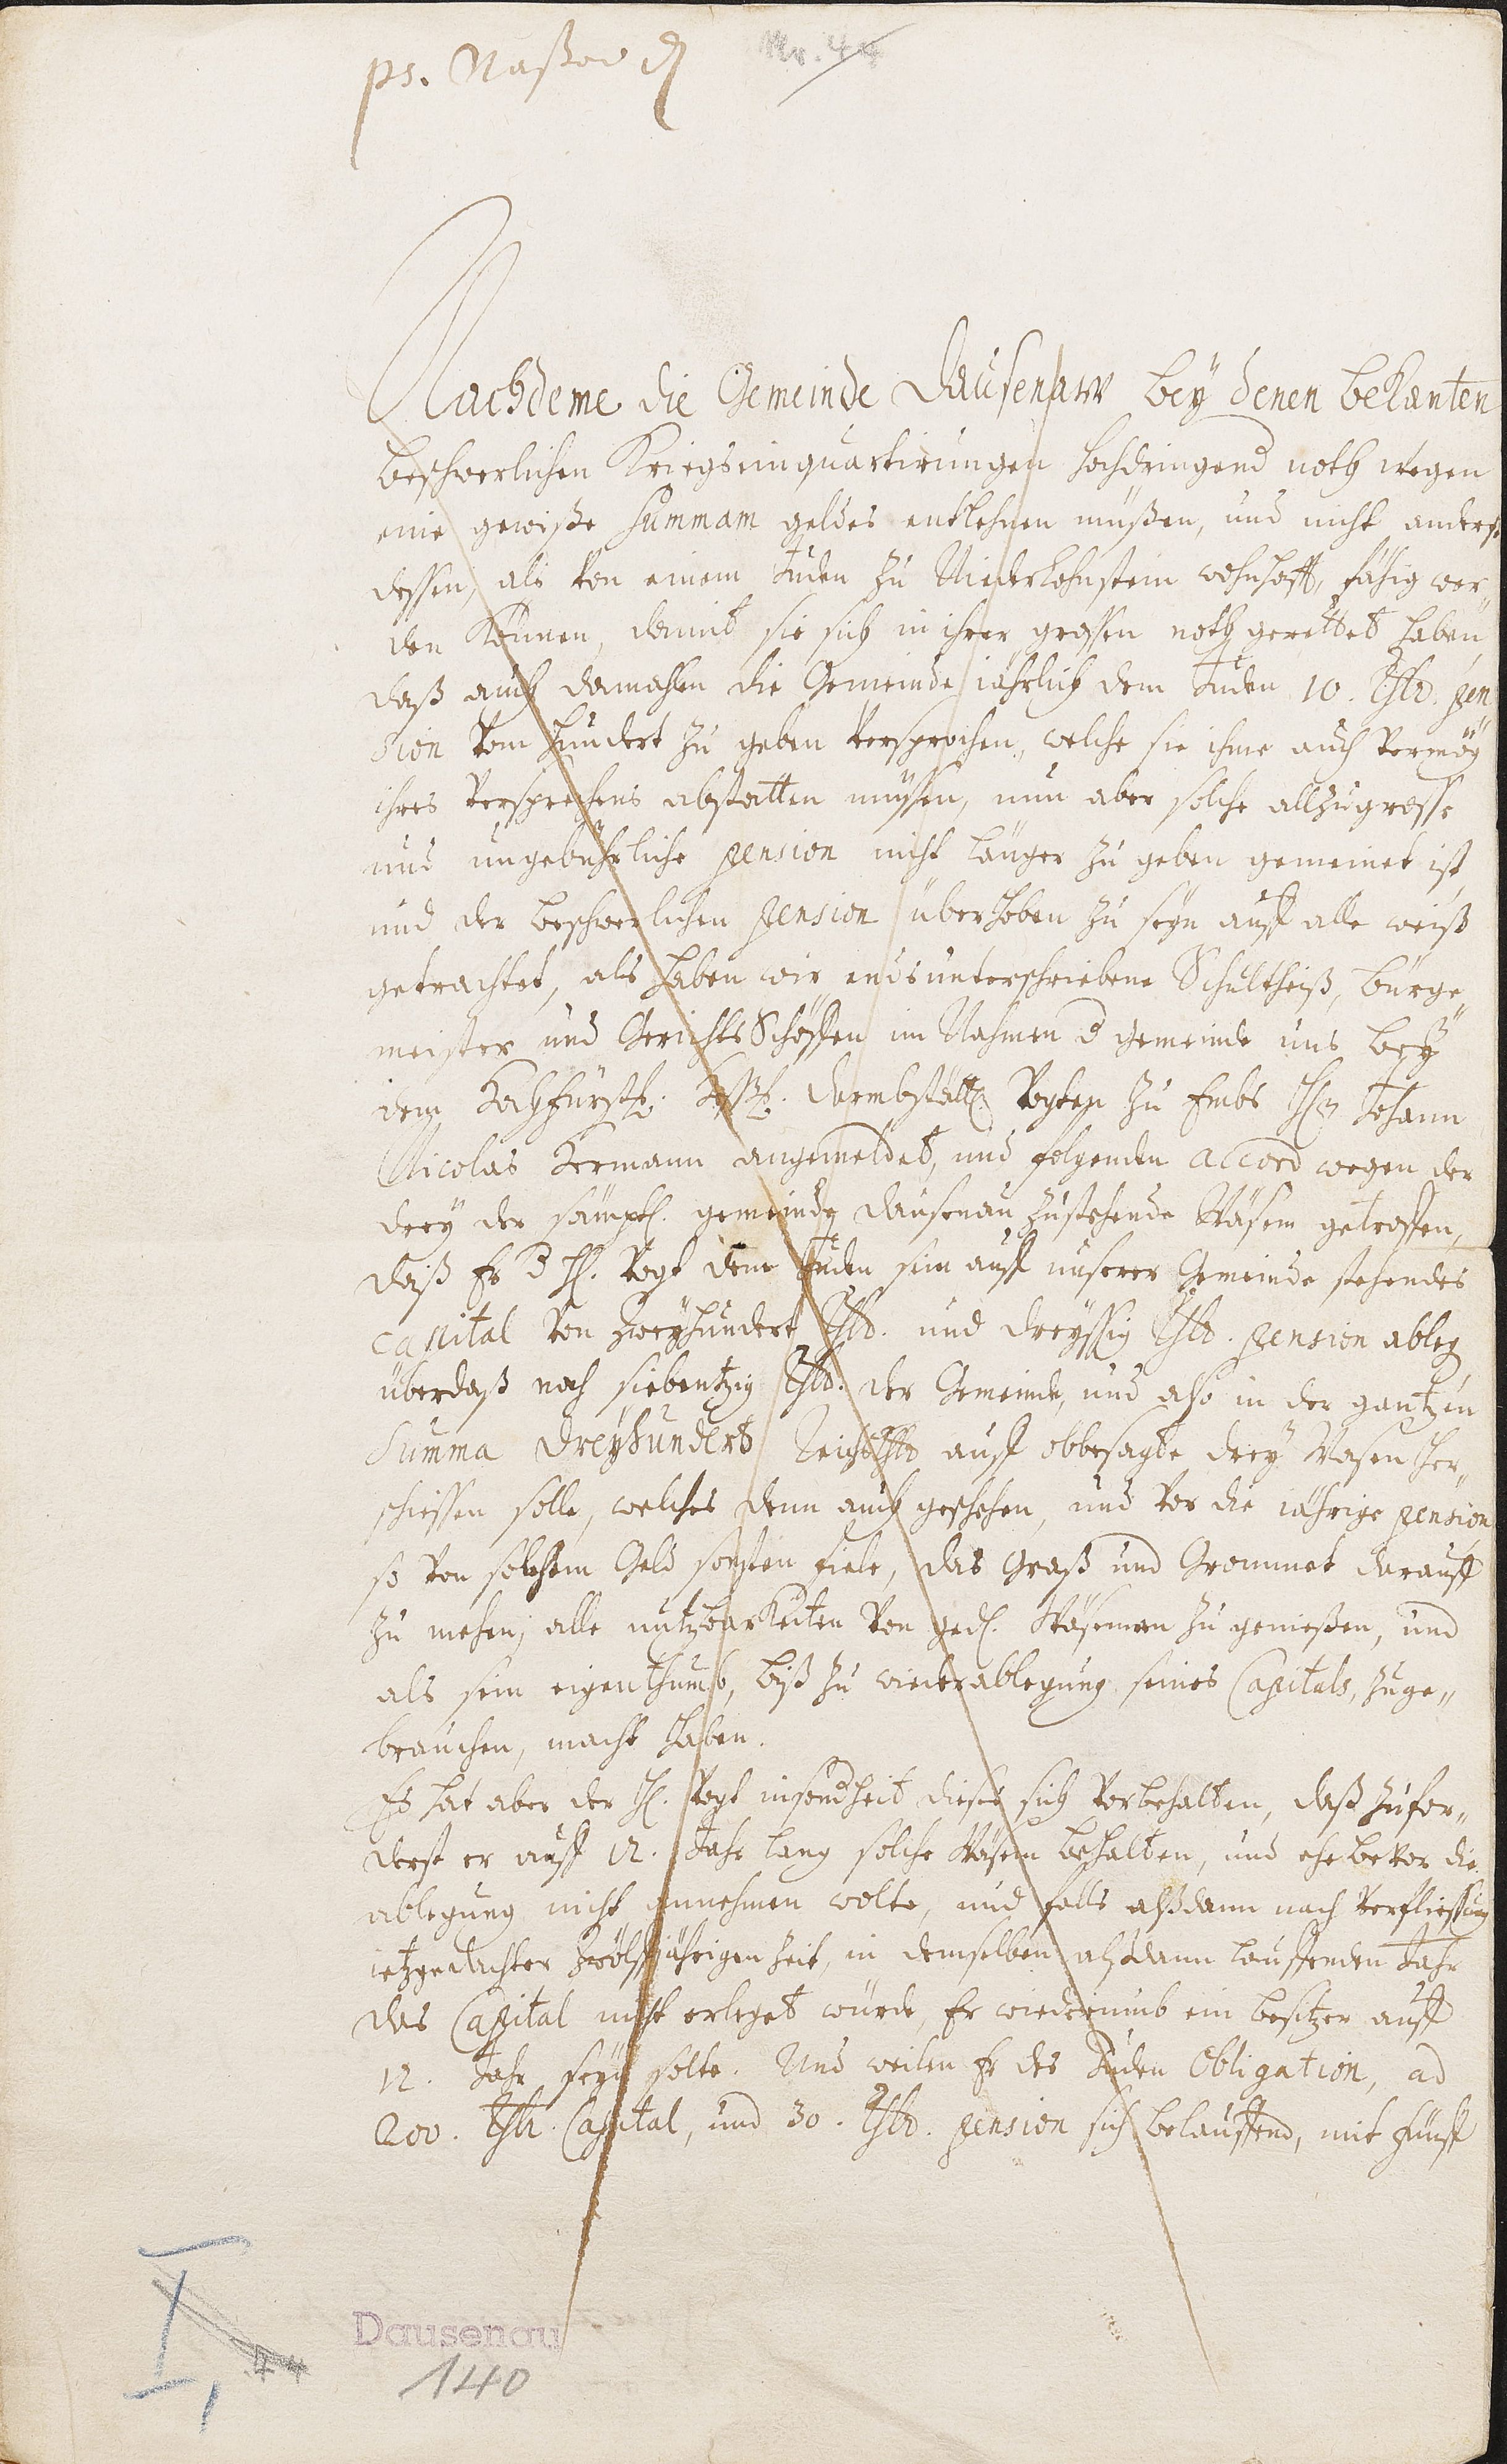 ps. Naßaw
Nr. 44
Nachdeme die Gemeinde Dausenaw bey denen bekanten
beschwerlichen Kriegseinquartirungen hochdringend noth wegen
eine gewiße Summam geldes entlehnen müßen, und nicht anderst
dessen, als von einem Juden zu Niederlohnstein wohnhafft, fähig wer„
den können, damit sie sich in ihrer grossen noth gerettet haben,
daß auch damahlen die Gemeinde jährlich dem Juden 10. Rthlr. pen„
sion vom hundert zu geben versprochen, welche sie ihme auch vermög
ihres versprechens abstatten müssen, nun aber solche allzugrosse
und ungebührliche pension nicht länger zu geben gemeinet ist,
und der beschwerlichen pension überhoben zu seyn auff alle weiß
getrachtet, als haben wir endsunterschriebene Schultheiß, bürge„
meister und Gerichts Schöffen im Nahmen d Gemeinde uns bey
dem Hochfürstl. Heßl. Darmbstätt. Vogten zu Embs Hn Johann
Nicolas Hermann angemeldet, und folgenden accord wegen der
drey der sämptl. gemeinde Dausenau zustehende Wäsem getroffen,
daß Er d H. Vogt dem Juden sein auff unserer Gemeinde stehendes
capital von zweyhundert Rthlr. und dreyssig Rthlr. pension ableg,
überdaß noch siebentzig Rthlr. der Gemeinde, und also in der gantzen
Summa dreyhundert Reichsthlr auff obbesagte drey Wasen her„
schiessen solle, welches denn auch geschehen, und vor die jährige pension
so von solchem Geld sonsten fiele, das Graß und Grommet darauff
zu mehen, alle nutzbarkeiten von ged. Wäsemen zu genießen, und
als sein eigenthumb, biß zu wiederablegung seines Capitals, zuge„
brauchen, macht haben.
Es hat aber der H. Vogt insondheit dieses sich vorbehalten, daß zufor„
derst er auff 12. Jahr lang solche Wäsem behalten, und ehe bevor die
ablegung nicht annehmen wolte, und falls alßdann nach verfliessung
jetzgedachter zwölffjährigen Zeit, in demselben alßdann lauffenden Jahr
das Capital nicht erleget würde, Er wiederumb ein besitzer auff
12. Jahr seyn solte. Und weilen Er des Juden Obligation, ad
200. Rthlr. Capital, und 30. Rthlr. pension sich belauffend, mit fünff
I,
44
Dausenau
140